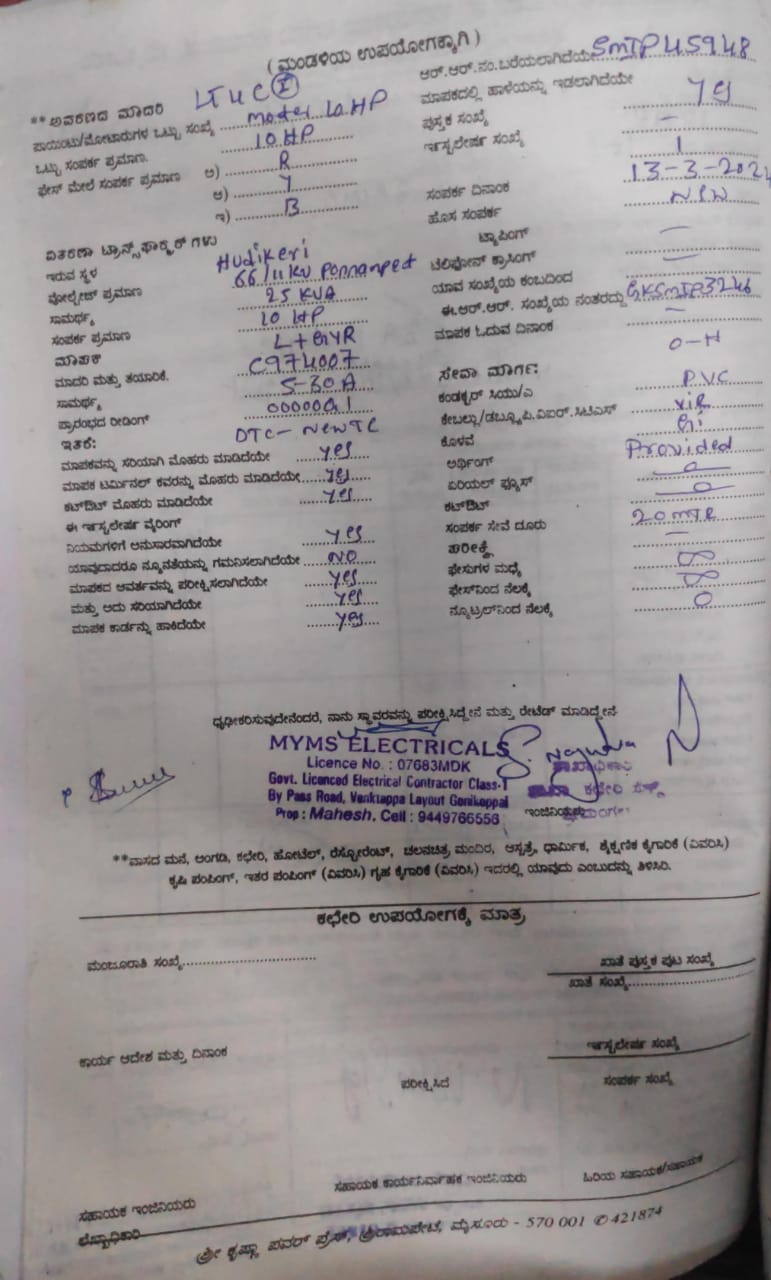 ( ಮಂಡಳಿಯ ಉಪಯೋಗಕ್ಕಾಗಿ )
** ಆವರಣದ ಮಾದರಿ LT4C(I)
ಪಾಯಿಂಟು/ಮೋಟಾರುಗಳ ಒಟ್ಟು ಸಂಖ್ಯೆ ..... moter 10 HP
ಒಟ್ಟು ಸಂಪರ್ಕ ಪ್ರಮಾಣ. 10 HP
ಫೇಸ್ ಮೇಲೆ ಸಂಪರ್ಕ ಪ್ರಮಾಣ ಅ) ..... R
ಆ) ..... Y
ಇ) ..... B
ಆರ್.ಆರ್.ನಂ.ಬರೆಯಲಾಗಿದೆಯೇ SmIP45948
ಮಾಪಕದಲ್ಲಿ ಹಾಳೆಯನ್ನು ಇಡಲಾಗಿದೆಯೇ
ಪುಸ್ತಕ ಸಂಖ್ಯೆ —
ಇನ್ಸ್ಟಲೇಷನ್ ಸಂಖ್ಯೆ 1
ಸಂಪರ್ಕ ದಿನಾಂಕ 13-3-202
ಹೊಸ ಸಂಪರ್ಕ
ಟ್ಯಾಪಿಂಗ್ —
ಟೆಲಿಫೋನ್ ಕ್ರಾಸಿಂಗ್ —
ಯಾವ ಸಂಖ್ಯೆಯ ಕಂಬದಿಂದ
ಈ.ಆರ್.ಆರ್. ಸಂಖ್ಯೆಯ ನಂತರದ್ದು GKSmIP3246
ಮಾಪಕ ಓದುವ ದಿನಾಂಕ —
ವಿತರಣಾ ಟ್ರಾನ್ಸ್‌ಫಾರ್ಮರ್ ಗಳು
ಇರುವ ಸ್ಥಳ Hudikeri
ವೋಲ್ಟೇಜ್ ಪ್ರಮಾಣ 66/11 KV Ponnanpet
ಸಾಮರ್ಥ್ಯ 25 KVA
ಸಂಪರ್ಕ ಪ್ರಮಾಣ 10 HP
ಮಾಪಕ L+GYR
ಮಾದರಿ ಮತ್ತು ತಯಾರಿಕೆ. C974007
ಸಾಮರ್ಥ್ಯ 5-30A
ಪ್ರಾರಂಭದ ರೀಡಿಂಗ್
ಇತರೆ: DTC - New TC
ಮಾಪಕವನ್ನು ಸರಿಯಾಗಿ ಮೊಹರು ಮಾಡಿದೆಯೇ ..... yes
ಮಾಪಕ ಟರ್ಮಿನಲ್ ಕವರನ್ನು ಮೊಹರು ಮಾಡಿದೆಯೇ ..... yes
ಕಟ್‌ಔಟ್ ಮೊಹರು ಮಾಡಿದೆಯೇ ..... yes
ಈ ಇನ್ಸ್ಟಲೇಷನ್ ವೈರಿಂಗ್
ನಿಯಮಗಳಿಗೆ ಅನುಸಾರವಾಗಿದೆಯೇ ..... yes
ಯಾವುದಾದರೂ ನ್ಯೂನತೆಯನ್ನು ಗಮನಿಸಲಾಗಿದೆಯೇ ..... NO
ಮಾಪಕದ ಆವರ್ತವನ್ನು ಪರೀಕ್ಷಿಸಲಾಗಿದೆಯೇ ..... yes
ಮತ್ತು ಅದು ಸರಿಯಾಗಿದೆಯೇ ..... yes
ಮಾಪಕ ಕಾರ್ಡನ್ನು ಹಾಕಿದೆಯೇ ..... yes
ಸೇವಾ ಮಾರ್ಗ: O-H
ಕಂಡಕ್ಟರ್ ಸಿಯು/ಎ PVC
ಕೇಬಲ್ಲು/ಡಬ್ಲ್ಯೂ.ಪಿ.ವಿಐಆರ್.ಸಿಟಿಎಸ್ vir
ಕೊಳವೆ Gi
ಅರ್ಥಿಂಗ್ Provided
ಏರಿಯಲ್ ಫ್ಯೂಸ್ 0
ಕಟ್‌ಔಟ್ 0
ಸಂಪರ್ಕ ಸೇವೆ ದೂರು 20 mtr
ಪರೀಕ್ಷೆ —
ಫೇಸುಗಳ ಮಧ್ಯೆ ∞
ಫೇಸ್‌ನಿಂದ ನೆಲಕ್ಕೆ ∞
ನ್ಯೂಟ್ರಲ್‌ನಿಂದ ನೆಲಕ್ಕೆ 0
ಧೃಢೀಕರಿಸುವುದೇನೆಂದರೆ, ನಾನು ಸ್ಥಾವರವನ್ನು ಪರೀಕ್ಷಿಸಿದ್ದೇನೆ ಮತ್ತು ರೇಟೆಡ್ ಮಾಡಿದ್ದೇನೆ
MYMS ELECTRICALS
Licence No. : 07683MDK
Govt. Licenced Electrical Contractor Class-1
By Pass Road, Venktappa Layout Gonikoppal
Prop : Mahesh. Cell : 9449766556
**ವಾಸದ ಮನೆ, ಅಂಗಡಿ, ಕಛೇರಿ, ಹೋಟೆಲ್, ರೆಸ್ಟೋರೆಂಟ್, ಚಲನಚಿತ್ರ ಮಂದಿರ, ಆಸ್ಪತ್ರೆ, ಧಾರ್ಮಿಕ, ಶೈಕ್ಷಣಿಕ ಕೈಗಾರಿಕೆ (ವಿವರಿಸಿ)
ಕೃಷಿ ಪಂಪಿಂಗ್, ಇತರ ಪಂಪಿಂಗ್ (ವಿವರಿಸಿ) ಗೃಹ ಕೈಗಾರಿಕೆ (ವಿವರಿಸಿ) ಇದರಲ್ಲಿ ಯಾವುದು ಎಂಬುದನ್ನು ತಿಳಿಸಿರಿ.
ಕಛೇರಿ ಉಪಯೋಗಕ್ಕೆ ಮಾತ್ರ
ಮಂಜೂರಾತಿ ಸಂಖ್ಯೆ..............................
ಖಾತೆ ಪುಸ್ತಕ ಪುಟ ಸಂಖ್ಯೆ
ಖಾತೆ ಸಂಖ್ಯೆ..............................
ಕಾರ್ಯ ಆದೇಶ ಮತ್ತು ದಿನಾಂಕ
ಇನ್ಸ್ಟಲೇಷನ್ ಸಂಖ್ಯೆ
ಪರೀಕ್ಷಿಸಿದೆ
ಸಂಪರ್ಕ ಸಂಖ್ಯೆ
ಸಹಾಯಕ ಇಂಜಿನಿಯರು
ಸಹಾಯಕ ಕಾರ್ಯನಿರ್ವಾಹಕ ಇಂಜಿನಿಯರು
ಹಿರಿಯ ಸಹಾಯಕ/ಸಹಾಯಕ
ಲೆಖ್ಖಾಧಿಕಾರಿ
ಶ್ರೀ ಕೃಷ್ಣಾ ಪವರ್ ಪ್ರೆಸ್, ಶ್ರೀರಾಮಪೇಟೆ, ಮೈಸೂರು - 570 001 ✆ 421874